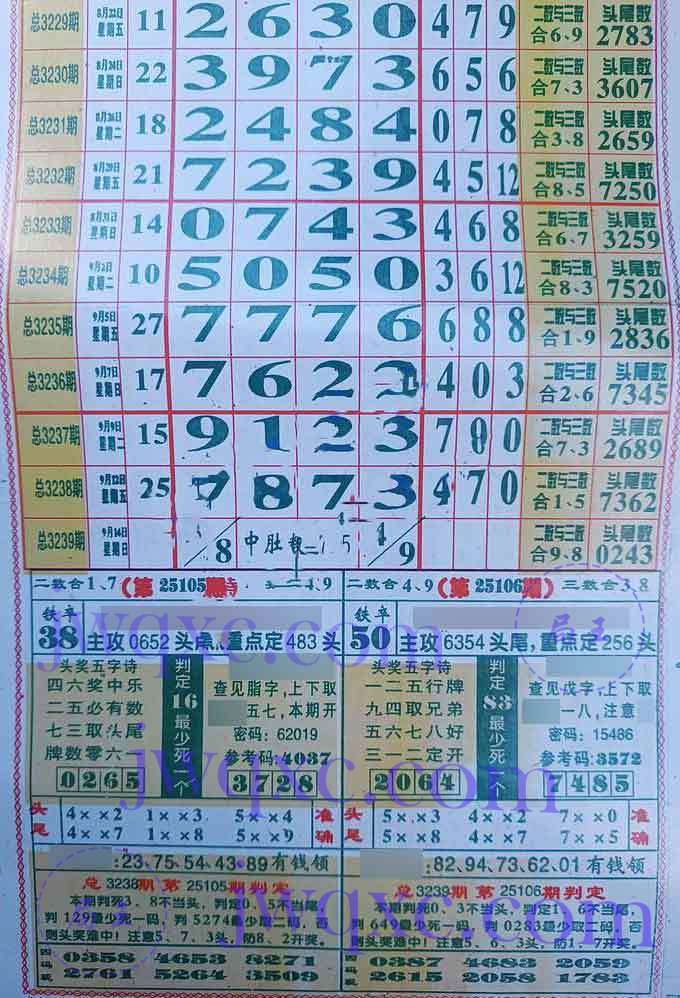 总3229期 8月22日 星期五 11 2 6 3 0 4 7 9 二数与三数 合6、9 头尾数 2783
总3230期 8月24日 星期日 22 3 9 7 3 6 5 6 二数与三数 合7、3 头尾数 3607
总3231期 8月26日 星期二 18 2 4 8 4 0 7 8 二数与三数 合3、8 头尾数 2659
总3232期 8月29日 星期五 21 7 2 3 9 4 5 12 二数与三数 合8、5 头尾数 7250
总3233期 8月31日 星期日 14 0 7 4 3 4 6 8 二数与三数 合6、7 头尾数 3259
总3234期 9月2日 星期二 10 5 0 5 0 3 6 12 二数与三数 合8、3 头尾数 7520
总3235期 9月5日 星期五 27 7 7 7 6 6 8 8 二数与三数 合1、9 头尾数 2836
总3236期 9月7日 星期日 17 7 6 2 2 4 0 3 二数与三数 合2、6 头尾数 7345
总3237期 9月9日 星期二 15 9 1 2 3 7 0 0 二数与三数 合7、3 头尾数 2689
总3238期 9月12日 星期五 25 7 8 7 3 4 7 0 二数与三数 合1、5 头尾数 7362
总3239期 9月14日 星期日 8 中肚 二 5 9 二数与三数 合9、8 头尾数 0243
二数合1、7(第25105期) 4、9
铁卒 38 主攻0652头 重点定483头
头奖五字诗
四六奖中乐
二五必有数
七三取头尾
牌数零六二
0265
判定16最少死一个
查见脂字,上下取
五七,本期开
密码:62019
参考码:4037
3728
二数合4、9(第25106期)三数合3、8
铁卒 50 主攻6354头尾,重点定256头
头奖五字诗
一二五行牌
九四取兄弟
五六七八好
三一二定开
2064
判定83最少死一个
查见戍字,上下取
一八,注意
密码:15486
参考码:3572
7485
头尾 4××2 1××3 5××4 准确
4××7 1××8 5××9
头尾 5××3 4××2 7××0 准确
5××8 4××7 7××5
:23、75、54、43、89有钱领
:82、94、73、62、01有钱领
总3238期第25105期判定
本期判死3、8不当头,判定0、5不当尾,
判129最少死一码,判5274最少取二码,否
则头奖难中!注意5、7、3头,防8、2开奖。
四码奖 0358 4653 8271
2761 5264 3509
总3239期第25106期判定
本期判死0、3不当头,判定1、6不当尾,
判649最少死一码,判0283最少取二码,否
则头奖难中!注意5、6、3头,防1、7开奖。
四码奖 0387 4683 2059
2615 2058 1783
jwqxc.com
jwqxc.com
jwqxc.com